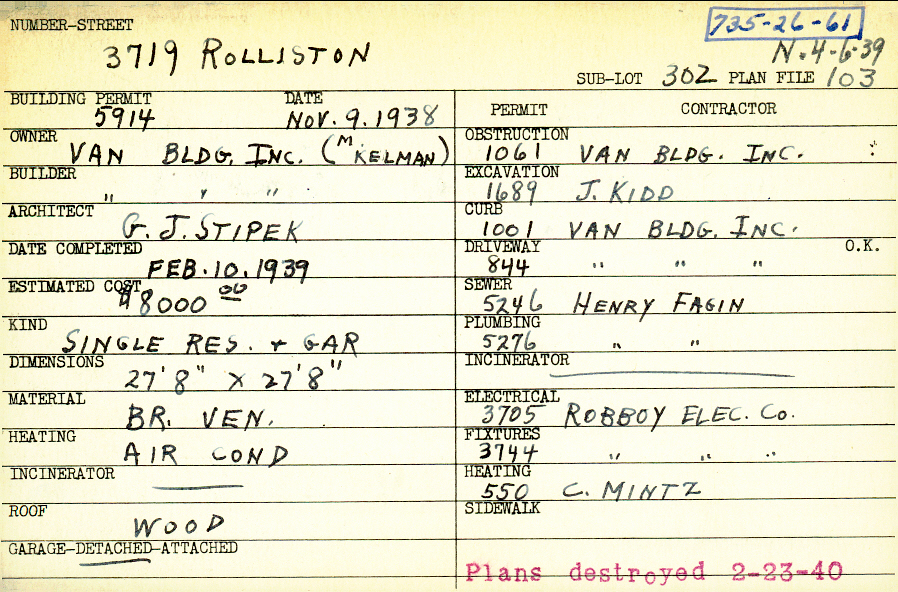 735-26-61
NUMBER-STREET
3719 ROLLISTON
N.4-6-39
SUB-LOT 302 PLAN FILE 103
BUILDING PERMIT DATE
5914 NOV. 9. 1938
OWNER
VAN BLDG. INC. (M KELMAN)
BUILDER
" " "
ARCHITECT
G. J. STIPEK
DATE COMPLETED
FEB. 10. 1939
ESTIMATED COST
$8000 00
KIND
SINGLE RES. + GAR
DIMENSIONS
27'8" X 27'8"
MATERIAL
BR. VEN.
HEATING
AIR COND
INCINERATOR
ROOF
WOOD
GARAGE-DETACHED-ATTACHED
PERMIT CONTRACTOR
OBSTRUCTION
1061 VAN BLDG. INC.
EXCAVATION
1689 J. KIDD
CURB
1001 VAN BLDG. INC.
DRIVEWAY O.K.
844 " " "
SEWER
5246 HENRY FAGIN
PLUMBING
5276 " "
INCINERATOR
ELECTRICAL
3705 ROBBOY ELEC. CO.
FIXTURES
3744 " " "
HEATING
550 C. MINTZ
SIDEWALK
Plans destroyed 2-23-40